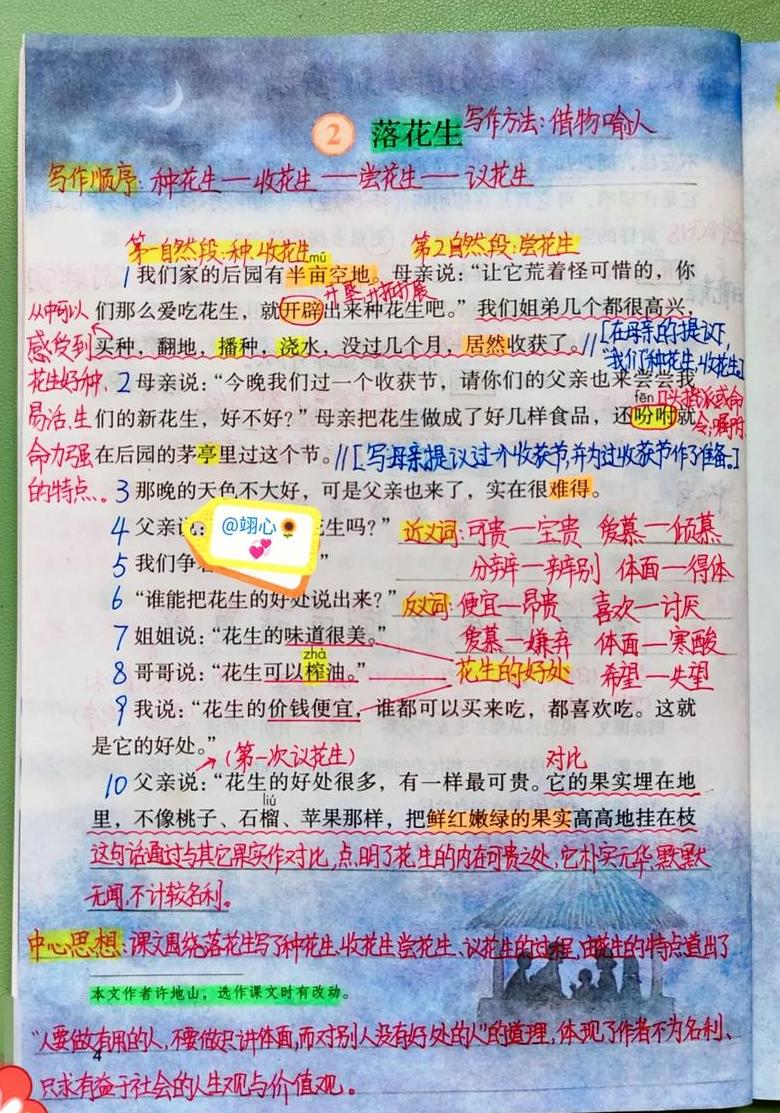 2 落花生 写作方法：借物喻人
写作顺序：种花生—收花生—尝花生—议花生
第一自然段：种、收花生 第2自然段：尝花生
mǔ
1 我们家的后园有半亩空地。母亲说：“让它荒着怪可惜的，你
开垦、开拓扩展
从中可以 们那么爱吃花生，就开辟出来种花生吧。”我们姐弟几个都很高兴，
感受到 买种，翻地，播种，浇水，没过几个月，居然收获了。//[在母亲的提议下，
“我们”种花生、收花生]
花生好种、 2 母亲说：“今晚我们过一个收获节，请你们的父亲也来尝尝我
fēn 口头指派或命
易活、生 们的新花生，好不好？”母亲把花生做成了好几样食品，还吩咐就 令；嘱咐
命力强 在后园的茅亭里过这个节。//[写母亲提议过个收获节，并为过收获节作了准备。]
的特点。 3 那晚的天色不太好，可是父亲也来了，实在很难得。
4 父亲说： 花生吗？” 近义词：可贵—宝贵 爱慕—倾慕
@翊心
5 我们争 ” 分辨—辨别 体面—得体
6 “谁能把花生的好处说出来？” 反义词：便宜—昂贵 喜欢—讨厌
7 姐姐说：“花生的味道很美。” 爱慕—嫌弃 体面—寒酸
zhà
8 哥哥说：“花生可以榨油。” 花生的好处 希望—失望
9 我说：“花生的价钱便宜，谁都可以买来吃，都喜欢吃。这就
是它的好处。” （第一次议花生） 对比
10 父亲说：“花生的好处很多，有一样最可贵。它的果实埋在地
liú
里，不像桃子、石榴、苹果那样，把鲜红嫩绿的果实高高地挂在枝
这句话通过与其它果实作对比，点明了花生的内在可贵之处，它朴实无华，默默
无闻，不计较名利。
中心思想：课文围绕落花生写了种花生、收花生、尝花生、议花生的过程，由花生的特点道出了
本文作者许地山，选作课文时有改动。
“人要做有用的人，不要做只讲体面，而对别人没有好处的人”的道理，体现了作者不为名利、
4
只求有益于社会的人生观与价值观。